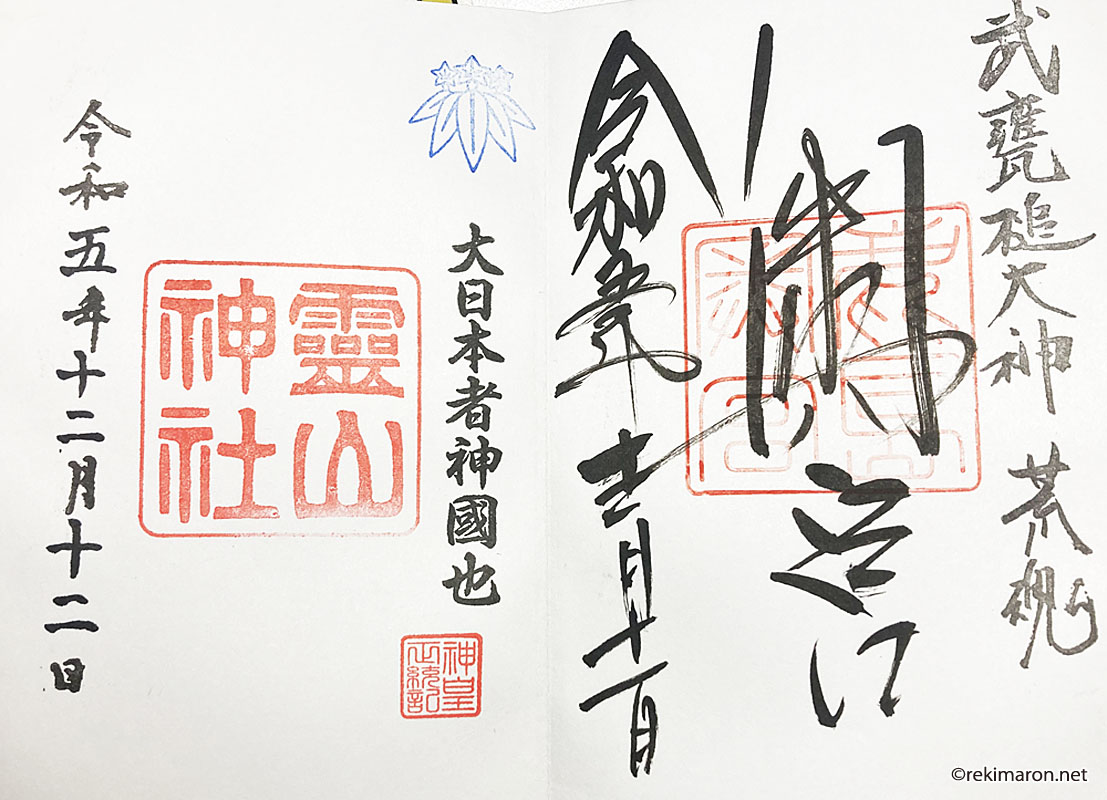 武甕槌大神 荒魂
令和五年十二月十一日
大日本者神國也
神皇
正統記
靈山
神社
令和五年十二月十二日
©rekimaron.net